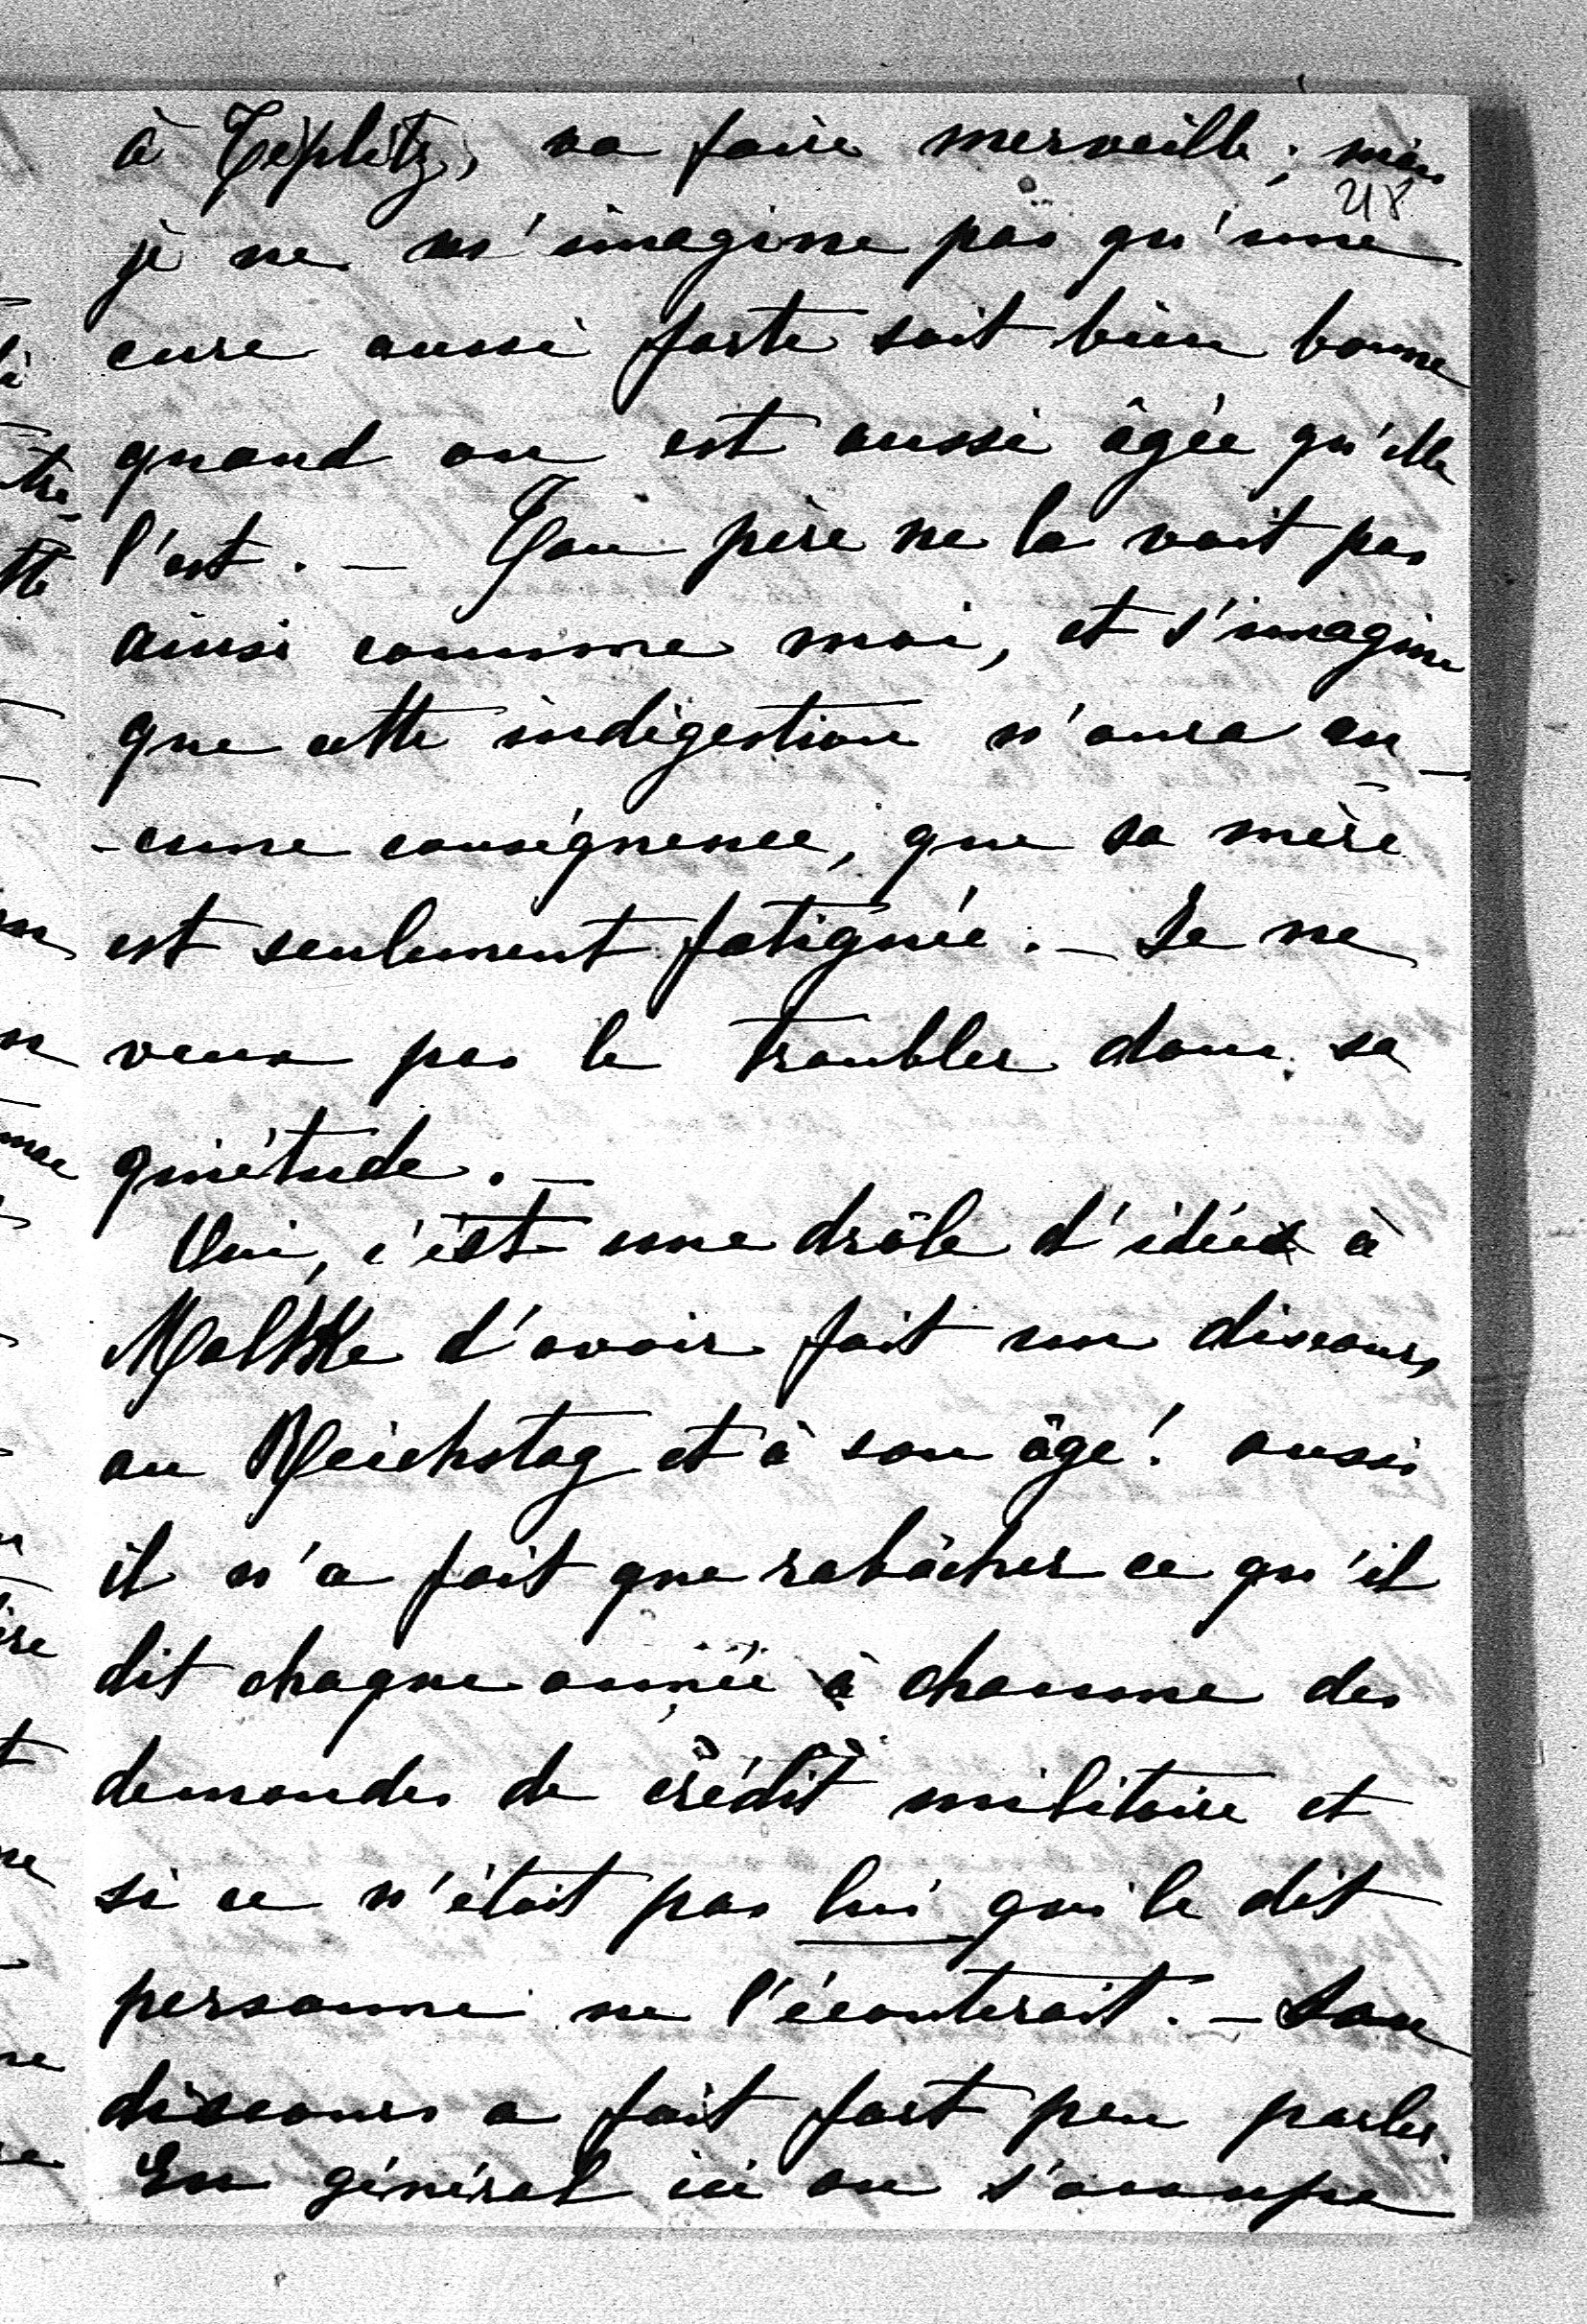 à Teplitz, va faire merveille; mais
218
je ne m'imagine pas qu'une
cure aussi forte soit bien bonne
quand on est aussi âgée qu'elle
l'est. — Ton père ne la voit pas
ainsi comme moi, et s'imagine
que cette indigestion n'aura au-
-cune conséquence, que sa mère
est seulement fatiguée. — Je ne
veux pas le troubler dans sa
quiétude. —
Oui, c'est une drôle d'idée à
Moltke d'avoir fait un discours
au Reichstag et à son âge! aussi
il n'a fait que rabâcher ce qu'il
dit chaque année à chacune des
demandes de crédit militaire et
si ce n'était pas lui qui le dit
personne ne l'écouterait. — Son
discours a fait fort peu parler.
En général ici on s'occupe